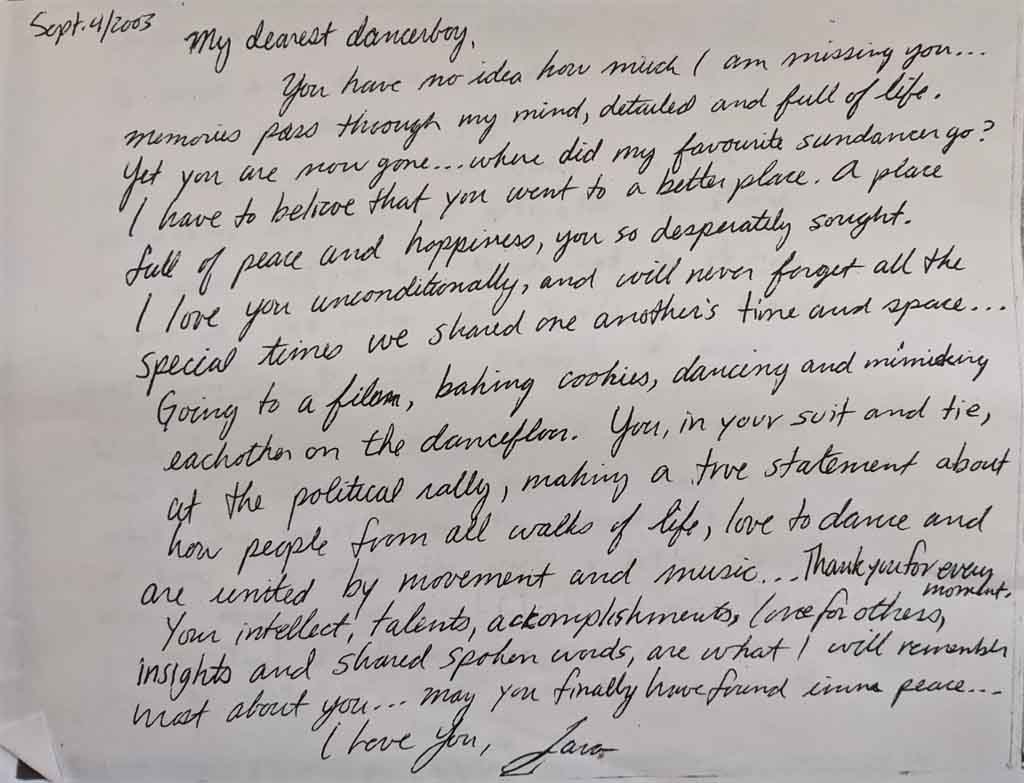 Sept. 4/2003
My dearest dancerboy,
You have no idea how much I am missing you...
memories pass through my mind, detailed and full of life.
Yet you are now gone...where did my favourite sundancer go?
I have to believe that you went to a better place. A place
full of peace and happiness, you so desperately sought.
I love you unconditionally, and will never forget all the
special times we shared one another's time and space...
Going to a film, baking cookies, dancing and mimicking
eachother on the dancefloor. You, in your suit and tie,
at the political rally, making a true statement about
how people from all walks of life, love to dance and
are united by movement and music... Thank you for every
moment.
Your intellect, talents, accomplishments, love for others,
insights and shared spoken words, are what I will remember
most about you... may you finally have found inner peace...
I Love You,